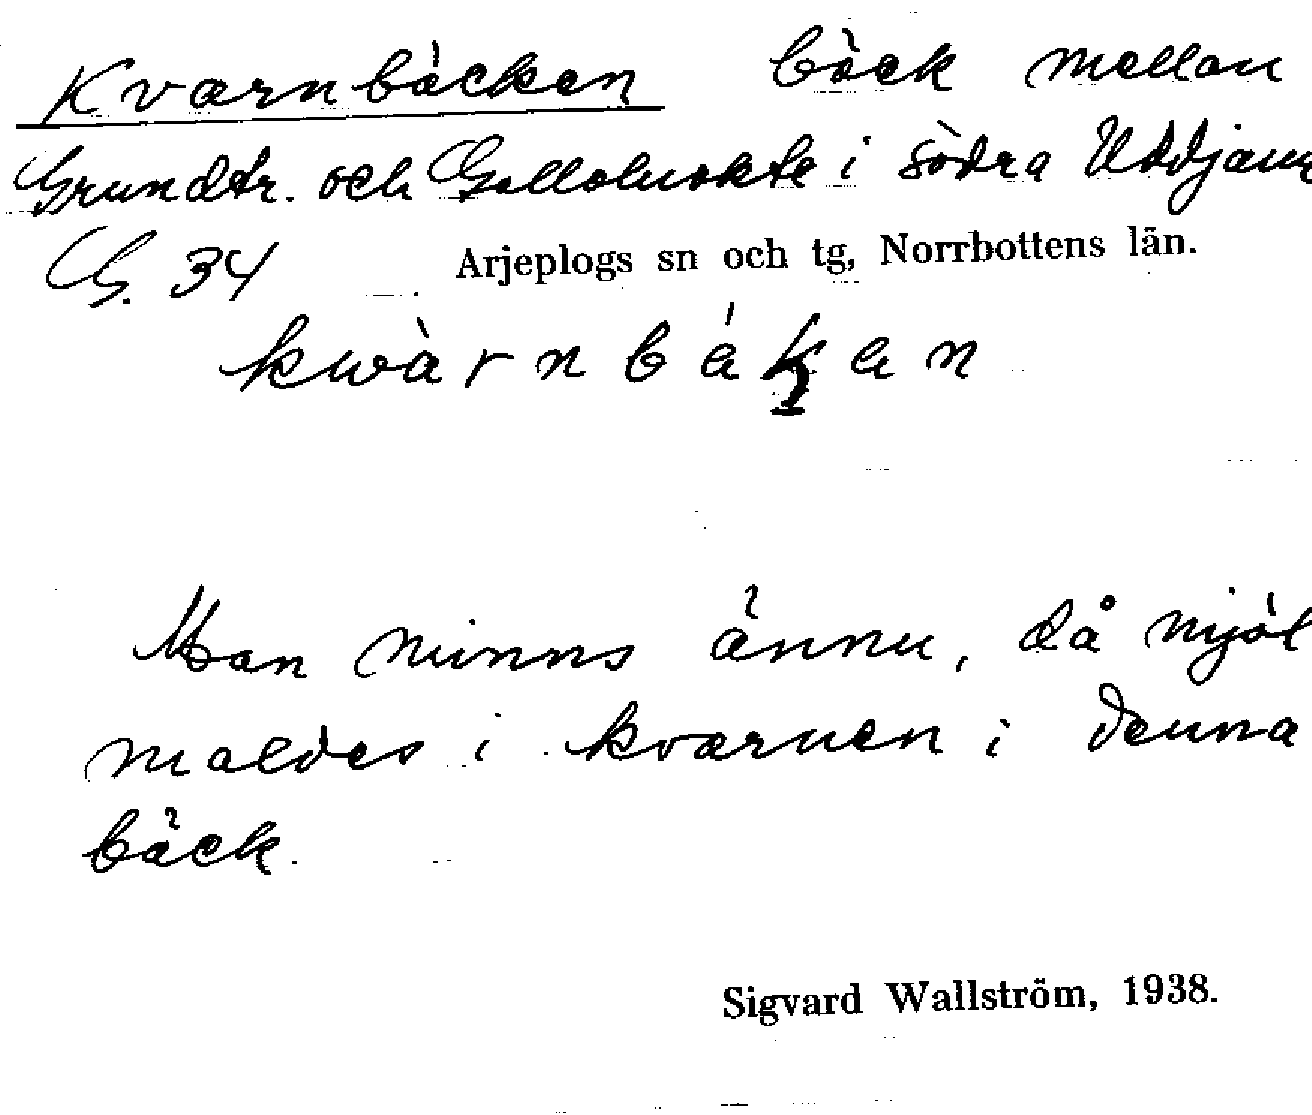 Kvarnbäcken bäck mellan
Grundtr. och Galloluokte i södra Uddjaur
G. 34 Arjeplogs sn och tg, Norrbottens län.
kwàrnbákan
Man minns ännu, då mjöl
maldes i kvarnen i denna
bäck.
Sigvard Wallström, 1938.